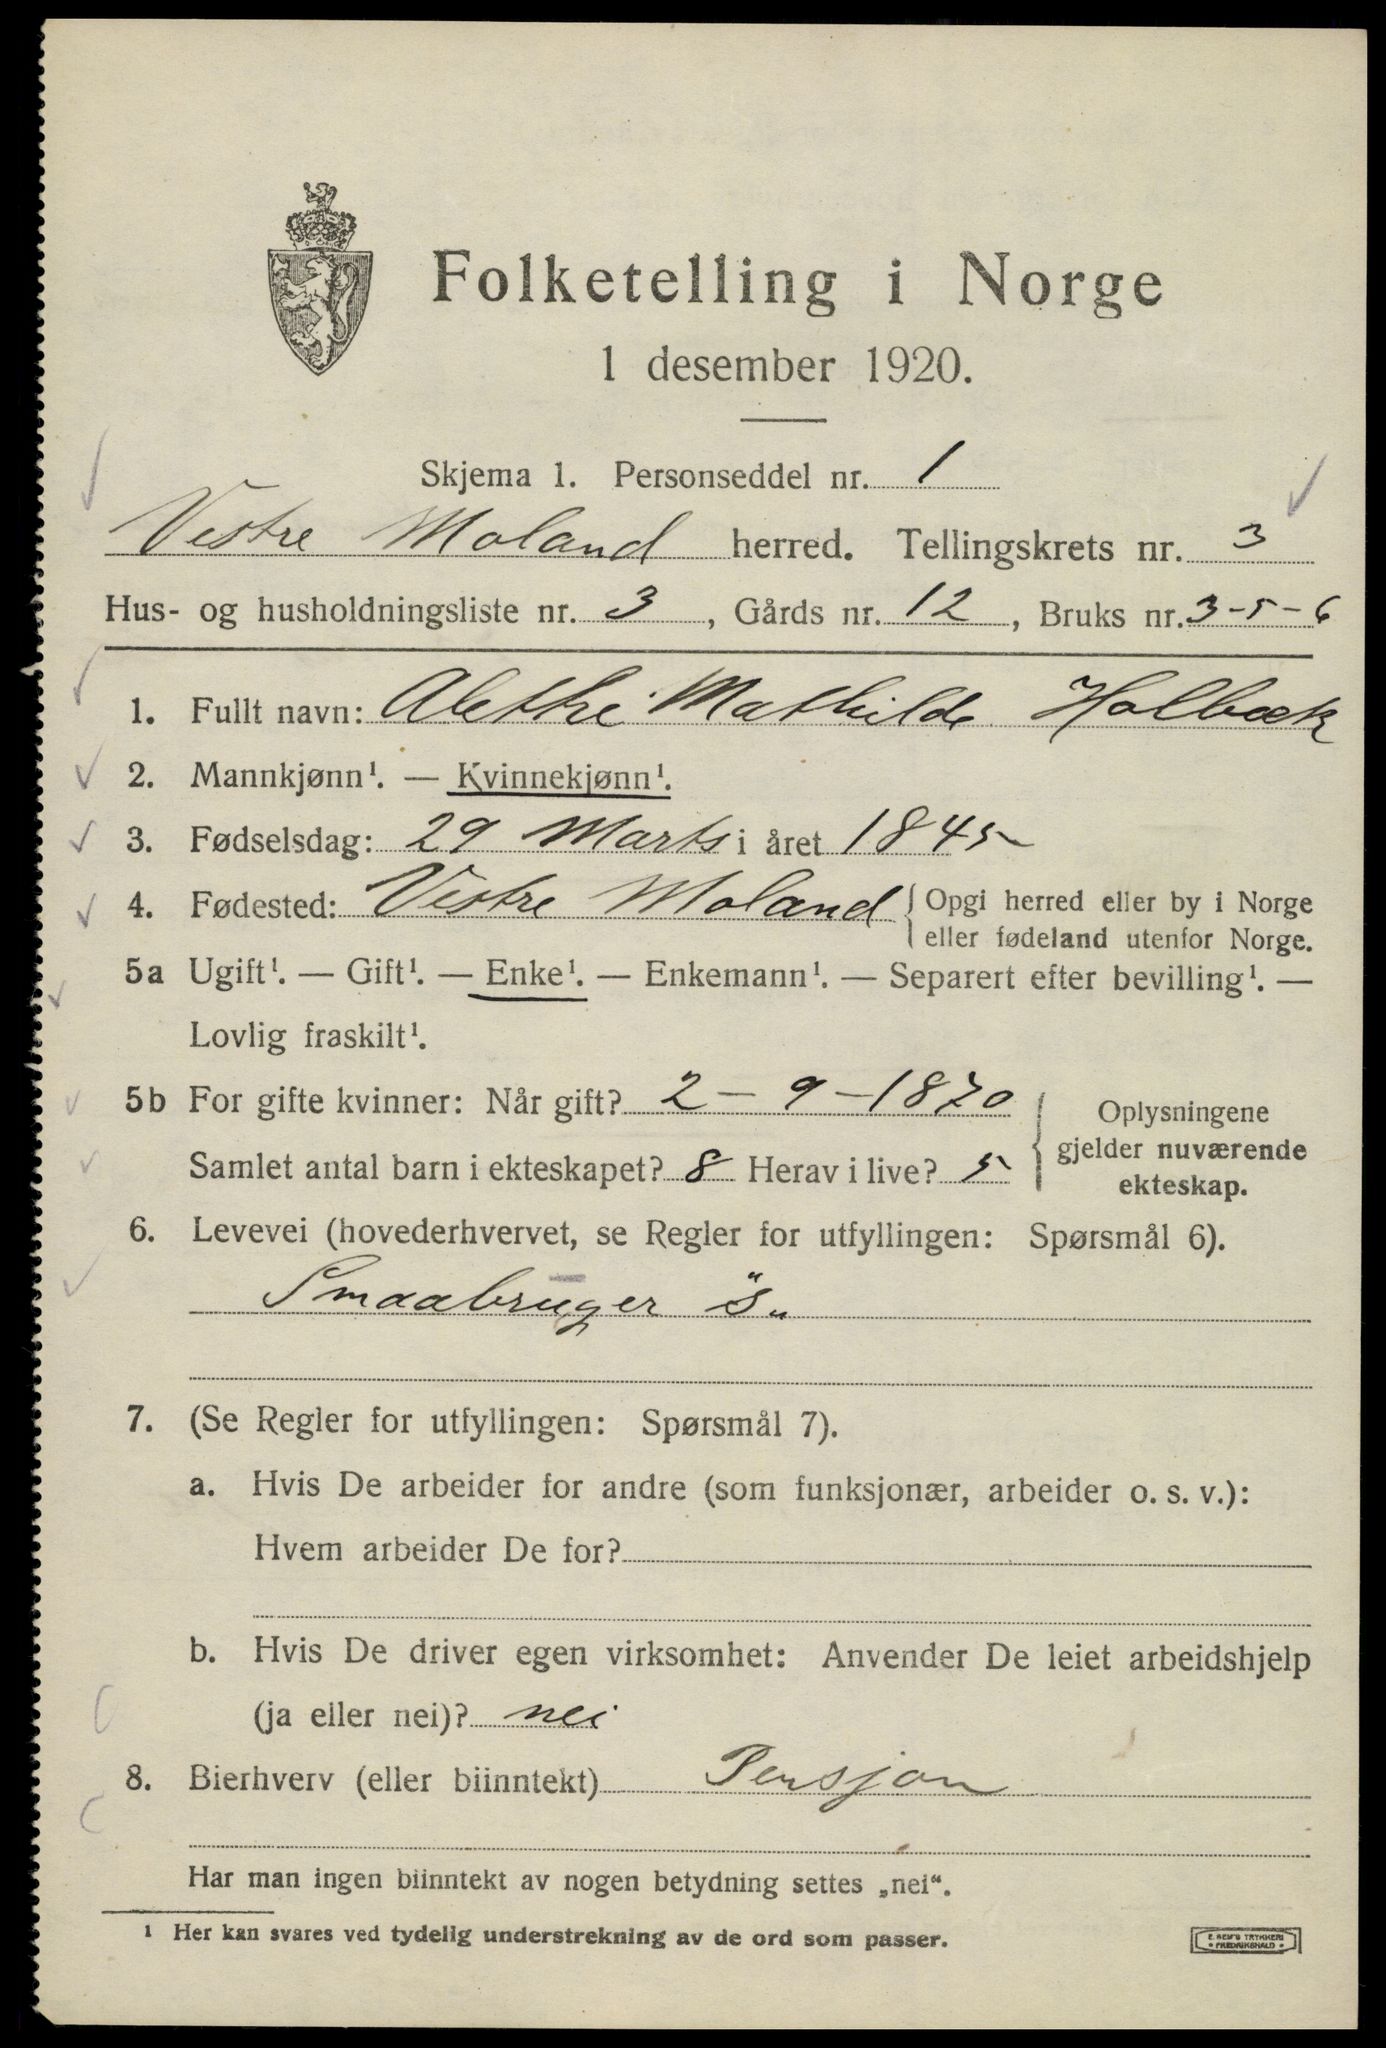 Folketelling i Norge
1 desember 1920.
Skjema 1. Personseddel nr. 1
Vestre Moland herred. Tellingskrets nr. 3
Hus- og husholdningsliste nr. 3, Gårds nr. 12, Bruks nr. 3-5-6
1. Fullt navn: Alethe Mathilde Holbæk
2. Mannkjønn¹. — Kvinnekjønn¹.
3. Fødselsdag: 29 Marts i året 1845
4. Fødested: Vestre Moland { Opgi herred eller by i Norge
eller fødeland utenfor Norge.
5a Ugift¹. — Gift¹. — Enke¹. — Enkemann¹. — Separert efter bevilling¹. —
Lovlig fraskilt¹.
5b For gifte kvinner: Når gift? 2-9-1870
Samlet antal barn i ekteskapet? 8 Herav i live? 5
Oplysningene
gjelder nuværende
ekteskap.
6. Levevei (hovederhvervet, se Regler for utfyllingen: Spørsmål 6).
Smaabruger "S"
7. (Se Regler for utfyllingen: Spørsmål 7).
a. Hvis De arbeider for andre (som funksjonær, arbeider o. s. v.):
Hvem arbeider De for?
b. Hvis De driver egen virksomhet: Anvender De leiet arbeidshjelp
(ja eller nei)? nei
8. Bierhverv (eller biinntekt) Pensjon
Har man ingen biinntekt av nogen betydning settes „nei“.
¹ Her kan svares ved tydelig understrekning av de ord som passer.
E. SEM'S TRYKKERI
FREDRIKSHALD